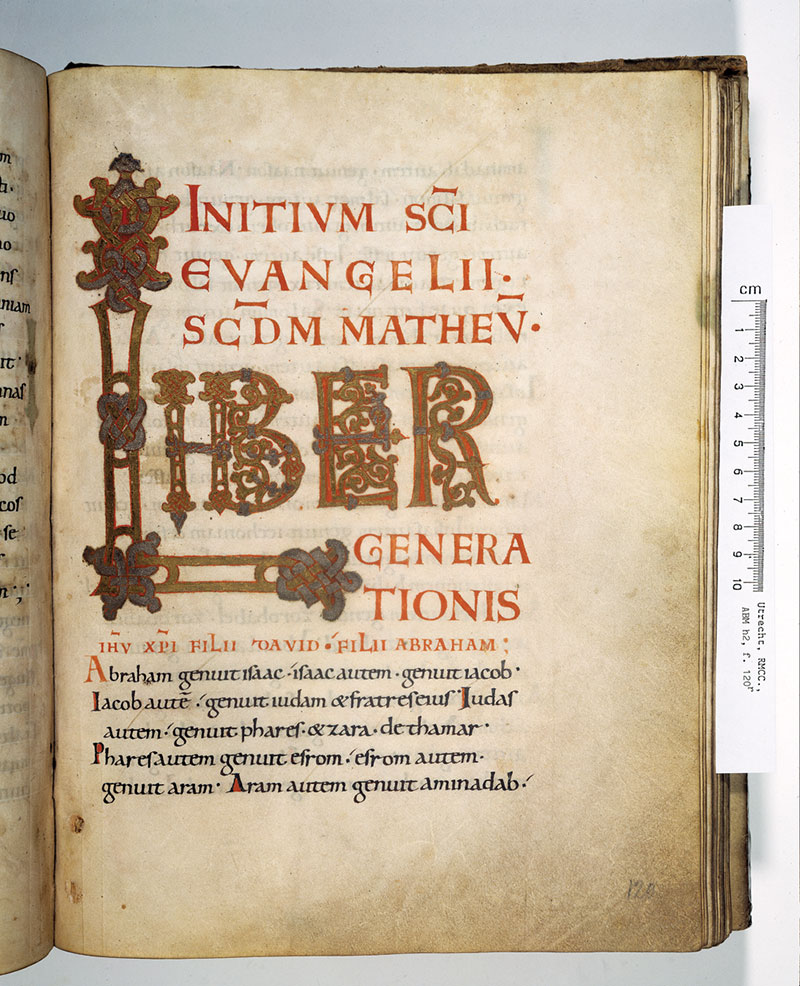 INITIVM SC̄I
EVANGELII·
SC̄DM MATHEV̄·
LIBER
GENERA
TIONIS
IH̄V XP̄I FILII DAVID · FILII ABRAHAM ;
Abraham genuit isaac · isaac autem · genuit iacob ·
Iacob autē · genuit iudam & fratres eius · Iudas
autem · genuit phares · & zara · de thamar ·
Phares autem genuit esrom · esrom autem ·
genuit aram · Aram autem genuit aminadab ·
cm
1
2
3
4
5
6
7
8
9
10
Utrecht, RMCC.,
ABM h2, f. 120r
120